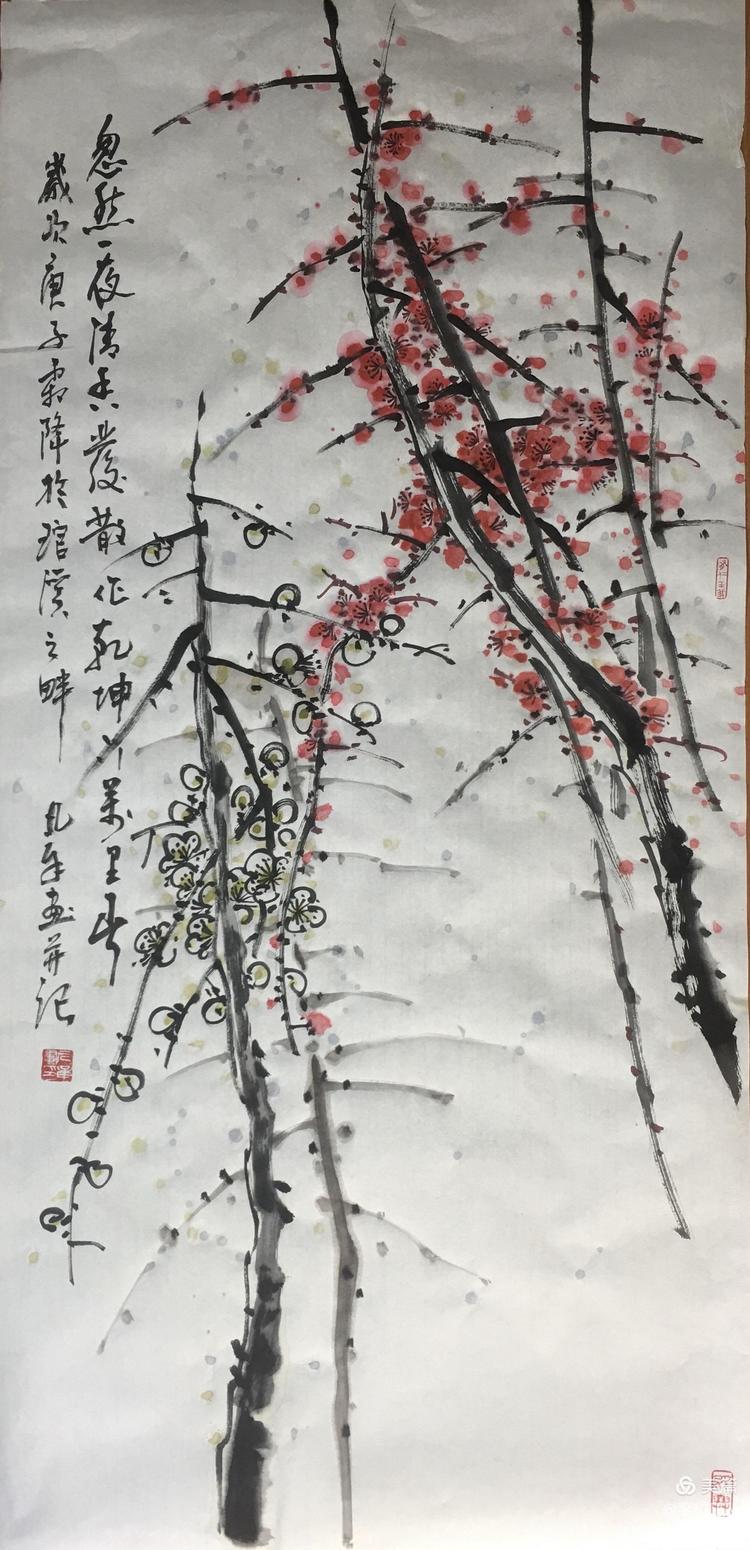 忽然一夜清香發散作乾坤萬里春
歲次庚子霜降於琯溪之畔
画并记
美篇